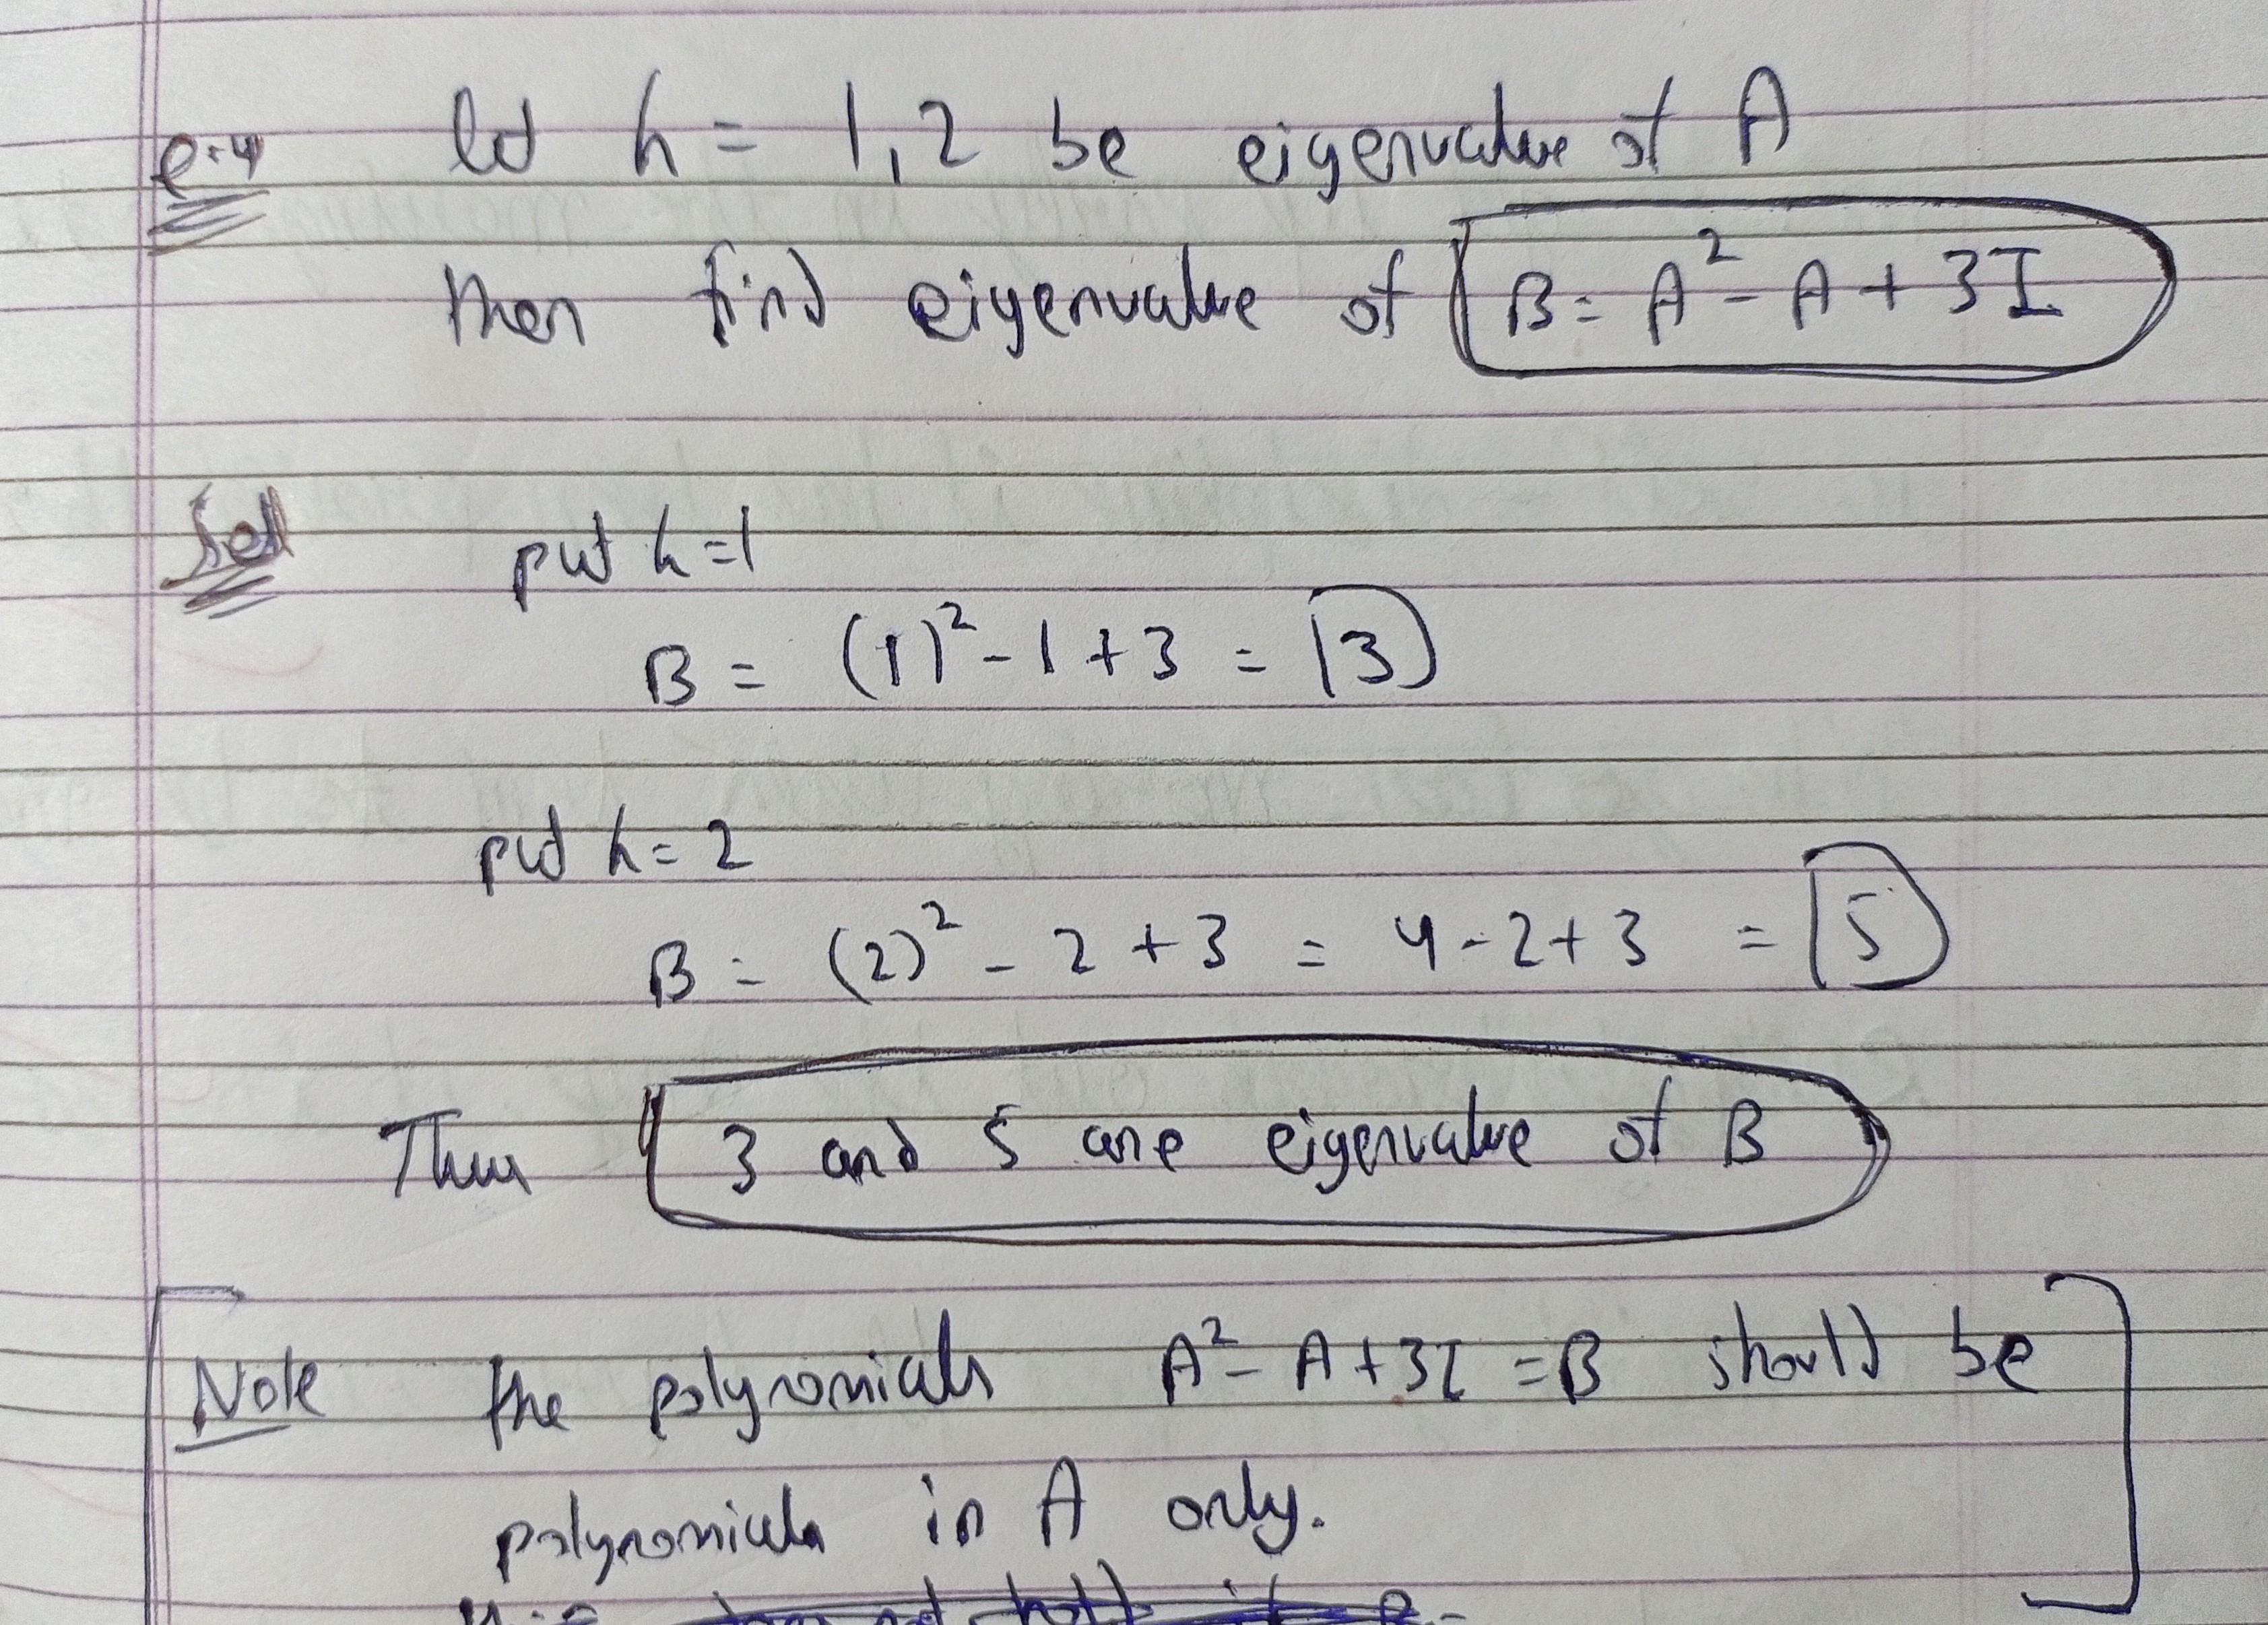 e.g let λ = 1, 2 be eigenvalue of A
then find eigenvalue of B = A² - A + 3I
Sol put λ = 1
B = (1)² - 1 + 3 = 3
put λ = 2
B = (2)² - 2 + 3 = 4 - 2 + 3 = 5
Thus 3 and 5 are eigenvalue of B
Note the polynomials A² - A + 3I = B should be
polynomials in A only.